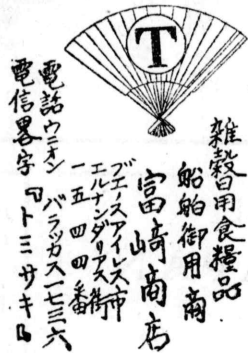 T
雑穀日用食糧品
船舶御用商
富﨑商店
ブエースアイレス市
エルナンダリアス街
一五四四番
電話ウニオン バラッカス一七三六
電信畧字『トミサキ』